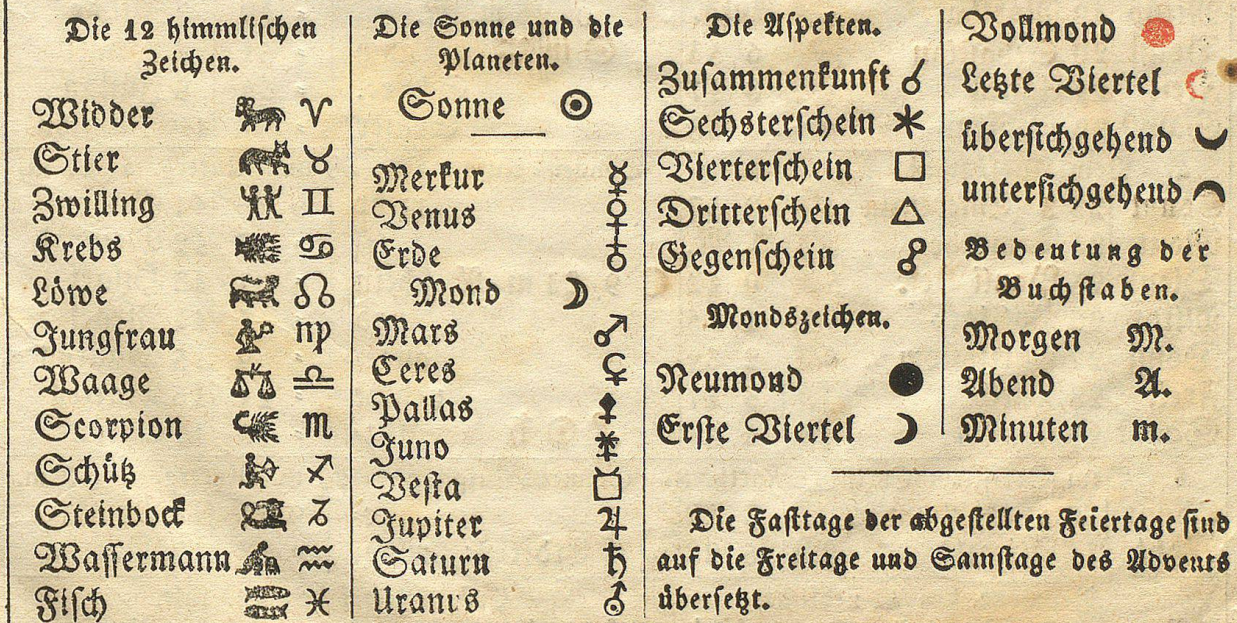 Die 12 himmlischen
Zeichen.
Widder ♈
Stier ♉
Zwilling ♊
Krebs ♋
Löwe ♌
Jungfrau ♍
Waage ♎
Scorpion ♏
Schütz ♐
Steinbock ♑
Wassermann ♒
Fisch ♓
Die Sonne und die
Planeten.
Sonne ☉
Merkur ☿
Venus ♀
Erde ♁
Mond ☽
Mars ♂
Ceres ⚳
Pallas ⚴
Juno ⚵
Vesta ⚶
Jupiter ♃
Saturn ♄
Uranus ⛢
Die Aspekten.
Zusammenkunft ☌
Sechsterschein ⚹
Vierterschein □
Dritterschein △
Gegenschein ☍
Mondszeichen.
Neumond ●
Erste Viertel ☽
Vollmond
Letzte Viertel ☾
übersichgehend
untersichgehend
Bedeutung der
Buchstaben.
Morgen M.
Abend A.
Minuten m.
Die Fasttage der abgestellten Feiertage sind
auf die Freitage und Samstage des Advents
übersetzt.